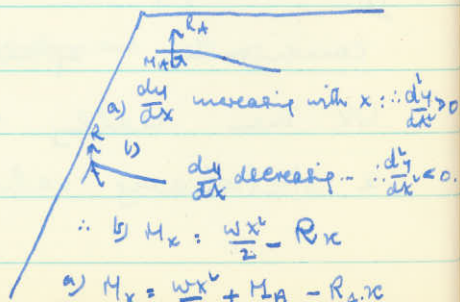 R_A
M_A
a) dy/dx increasing with x ∴ d²y/dx² > 0
R
b)
dy/dx decreasing - ∴ d²y/dx² < 0.
∴ b) M_x = wx²/2 - Rx
a) M_x = wx²/2 + M_A - R_A.x